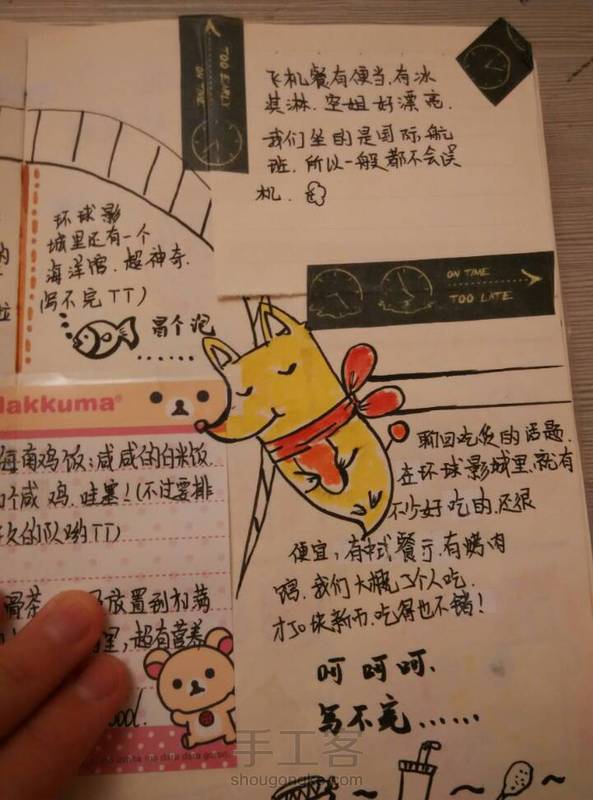 TOO EARLY
ON TIME
飞机餐有便当.有冰
淇淋.空姐好漂亮.
我们坐的是国际航
班.所以一般都不会误
机.
环球影
城里还有一个
海洋馆.超神奇.
(写不完TT)
冒个泡
ON TIME
TOO LATE
lakkuma®
海南鸡饭:咸咸的白米饭
个咸鸡.哇塞!(不过要排
久的队哟TT)
滑茶
放置到扣满
里,超有营养
ool.
聊回吃饭的话题.
在环球影城里.就有
不少好吃的.还很
便宜,有中式餐厅.有烤肉
馆.我们大概三个人吃.
才30块新币.吃得也不错!
呵呵呵.
写不完......
手工客
shougongke.com